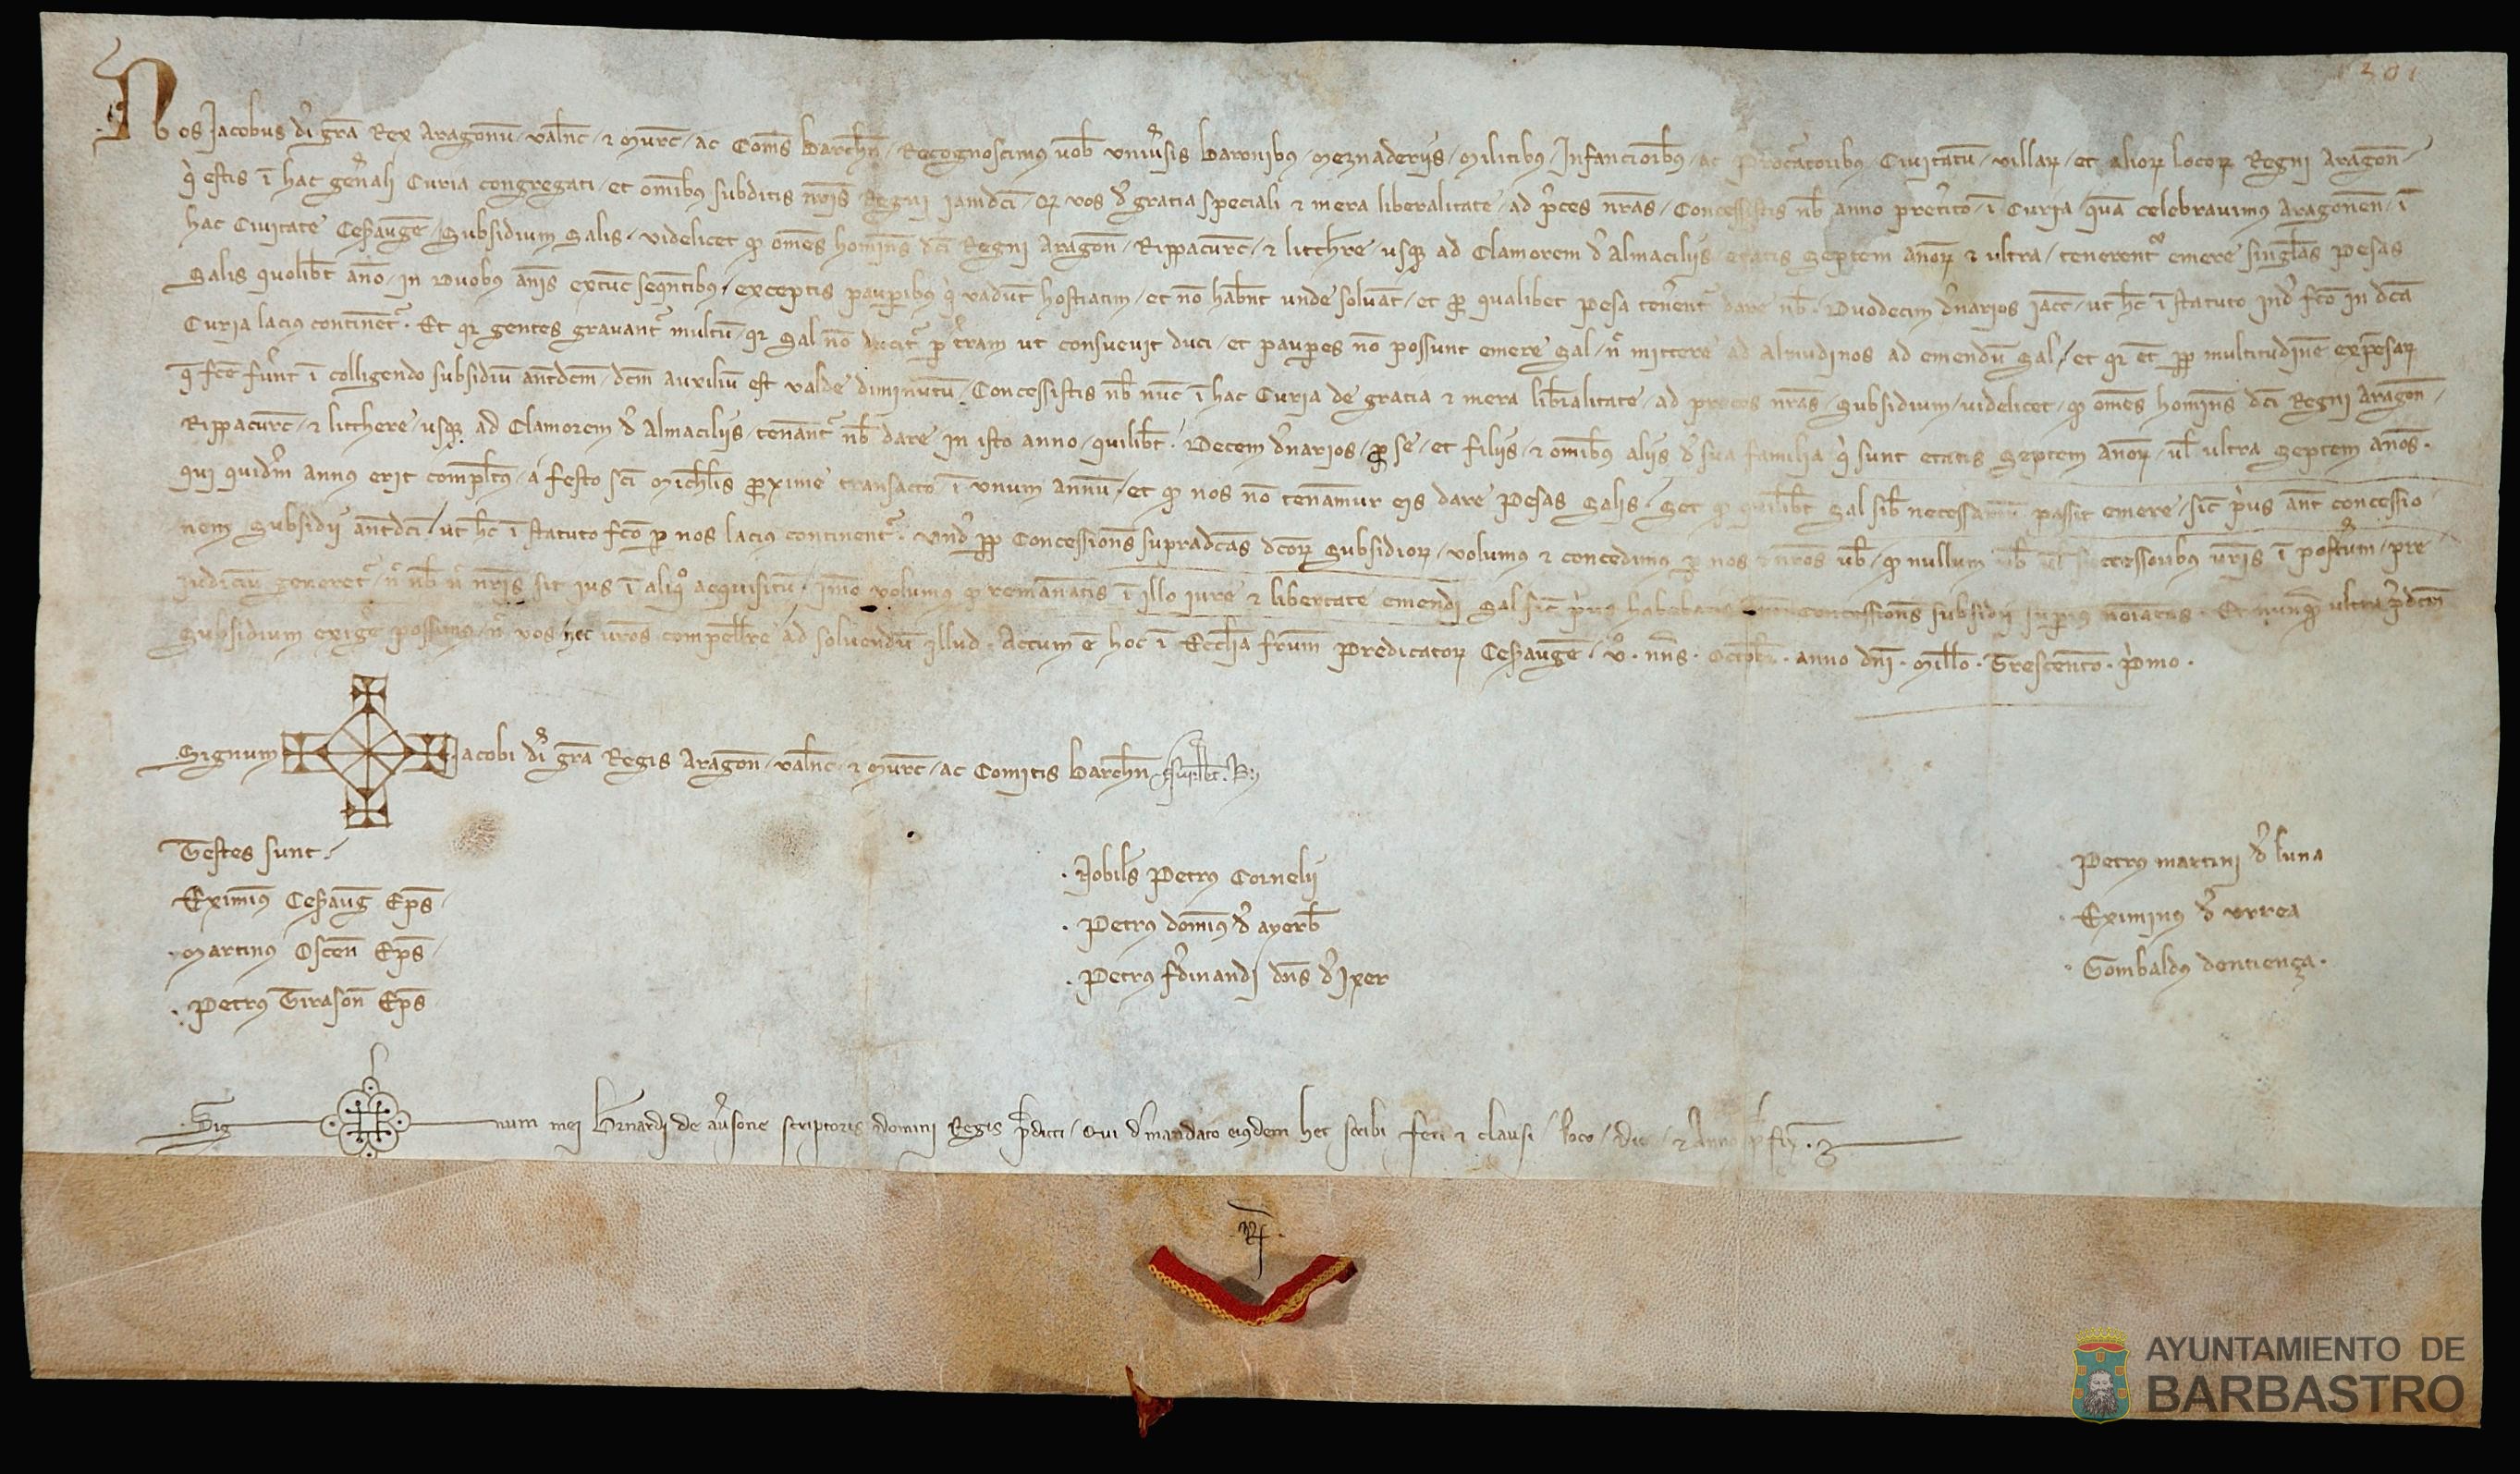 301
Nos Jacobus dei gra Rex Aragonu / valenc / et Murc / ac Comes Barchn / Recognoscimus vob vniusis baronibus / Meznaderiis / Militibus / Infancionibus / ac Procatoribus Civitatu / villar / et alior locor Regni Aragon /
qi estis i hac genali Curia congregati / et omibus subditis nris Regni iamdci / qr vos de gratia speciali et mera liberalitate / ad pces nras / Concessistis nb anno preterito / i Curia / qua celebravimus Aragonen / i
hac Civitate Cesauguste / Subsidium Salis / videlicet qd omes homines dci Regni Aragon / Rippacurc / et litthere / usqz ad Clamorem de Almaciliis / etatis Septem anor et ultra / tenerentr emere singlas Pesas
Salis quolibt ano / in Duobus anis extuc seqntibus / exceptis paupibus qi vadut hostiatim / et no habnt unde solvat / et pro qualibet Pesa tenent dare nb . Duodecim dnarios iacc / ut hec i statuto inde fco in dca
Curia lacius continetr . Et qr gentes gravantr multu / qr Sal no ducitr p tram ut consuevit duci / et paupes no possunt emere Sal / nec mittere ad Almudinos ad emendu Sal / et qr et pp multitudine expesar
q fce funt i colligendo subsidiu antdcm / dcm auxiliu est valde diminutu . Concessistis nb nuc i hac Curia de gratia et mera libialitate / ad preces nras / Subsidium / videlicet / qd omes homines dci Regni Aragon /
Rippacurc / et litthere / usqz ad Clamorem de Almaciliis / tenantr nb dare in isto anno / quilibt . Decem dnarios / pro se / et filiis / et omibus aliis de sua familia qi sunt etatis Septem anor / ul ultra Septem anos .
qui quidem annus erit completus / a festo sci Michlis proxime transacto i unum annu / et qd nos no tenamur eis dare Pesas Salis . Set qd quilibt Sal sib necessariu possit emere / sic pius ant concessio
nem Subsidii antdci / ut hec i statuto fco p nos lacius continentr . Unde pp Concessiones supradcas dcor Subsidior / volumus et concedimus p nos et nros ub / qd nullum ub ul successoribus uris i postum / pre
iudiciu generetr / nec nb nec nris sit ius i aliqo acquisitu . Imo volumus qd remanatis i illo iure et libertate emendi Sal sic pius habebatis concessiones subsidii supius noiatas . Et nunqz ultra pdcm
Subsidium exige possimus / nec vos nec uros compellre ad solvendu illud . Actum e hoc i Ecclia frum Predicator Cesauguste . vo . nns . Octobr . anno dni . Millo . Trescento . pimo .
Signum Jacobi dei gra Regis Aragon / valenc / et Murc / ac Comitis barchn
Testes sunt /
Eximius Cesaug Eps /
Martinus Oscen Eps /
Petrus Tirason Eps
Nobilis Petrus Cornelii
Petrus domius de ayerb
Petrus fdinandi dns de Ixer
Petrus martini de luna
Eximinus de urrea
Gombaldus dentiença .
Sig num mei Bnardi de aversone scriptoris domini Regis pdicti / Qui de mandato eiusdem hec scribi feci et clausi / loco / die / et Anno pfix .
AYUNTAMIENTO DE
BARBASTRO